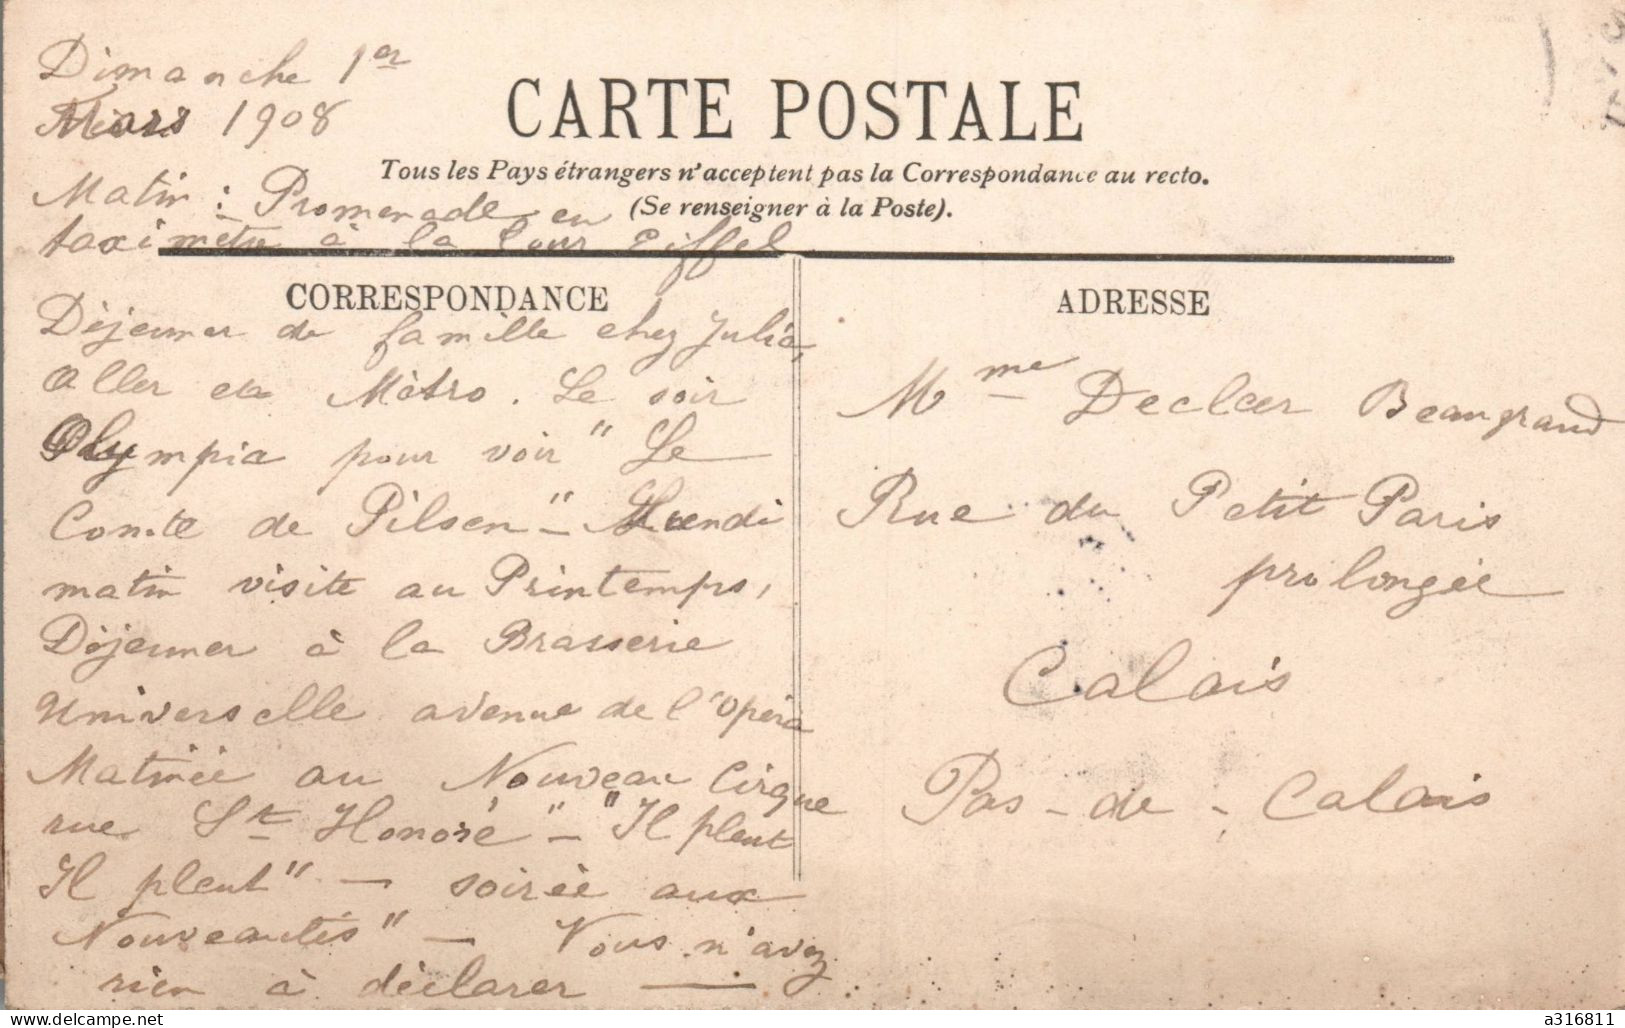 Dimanche 1er
Mars 1908
CARTE POSTALE
Tous les Pays étrangers n'acceptent pas la Correspondance au recto.
(Se renseigner à la Poste).
Matin : Promenade en
taximètre à la Tour Eiffel
CORRESPONDANCE
Déjeuner de famille chez Julia,
Aller en Métro. Le soir
Olympia pour voir "Le
Comte de Pilsen" - Lundi
matin visite au Printemps,
Déjeuner à la Brasserie
Universelle avenue de l'Opéra
Matinée au Nouveau Cirque
rue St Honoré" - "Il pleut
Il pleut" - soirée aux
Nouveautés" - Vous n'avez
rien à déclarer
ADRESSE
Mme Decleer Beaugrand
Rue du Petit Paris
prolongée
Calais
Pas-de-Calais
DELCAMPE.NET
a316811